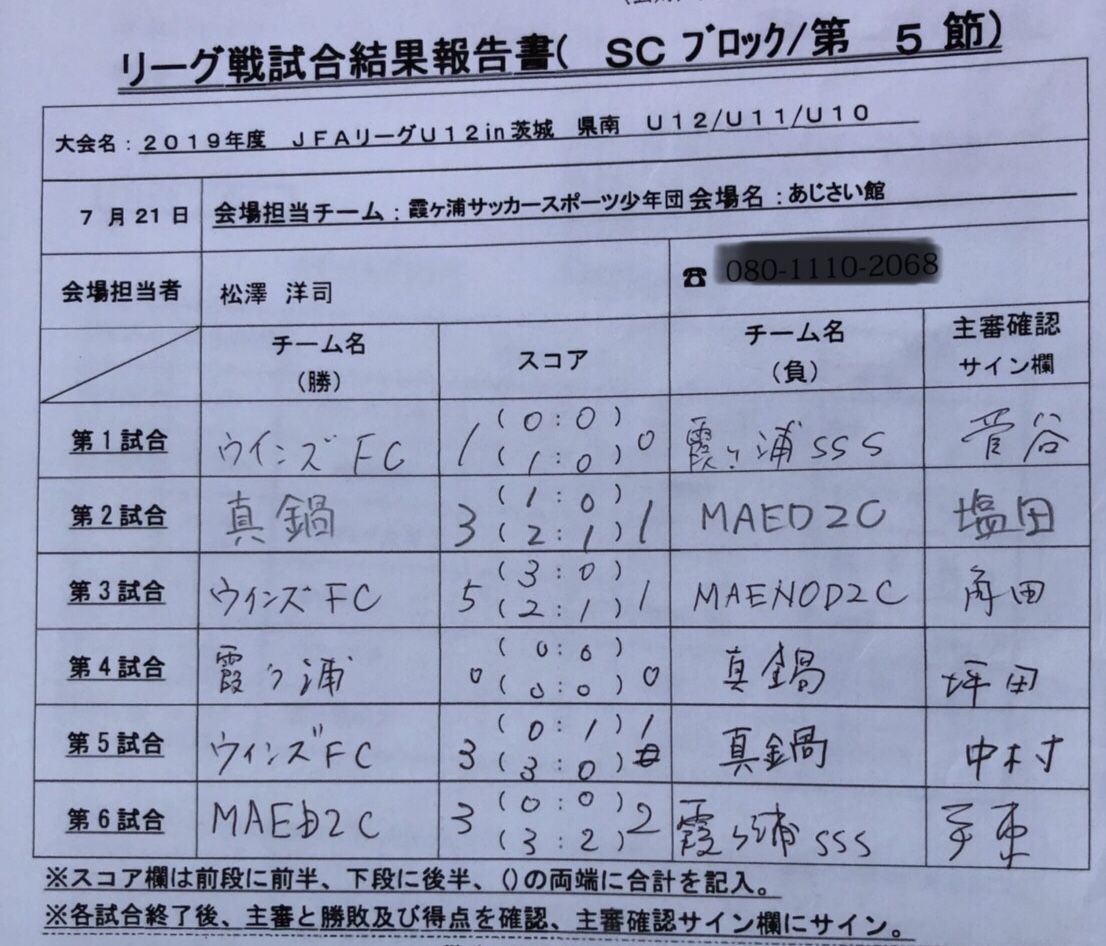 リーグ戦試合結果報告書( SC ブロック/第 5 節)
大会名：2019年度 JFAリーグU12in茨城 県南 U12/U11/U10
7 月 21 日 会場担当チーム：霞ヶ浦サッカースポーツ少年団 会場名：あじさい館
会場担当者 松澤 洋司 ☎
チーム名 (勝) スコア チーム名 (負) 主審確認 サイン欄
第1試合 ウインズFC 1 (0:0) (1:0) 0 霞ヶ浦SSS 菅谷
第2試合 真鍋 3 (1:0) (2:1) 1 MAED2C 塩田
第3試合 ウインズFC 5 (3:0) (2:1) 1 MAENOD2C 角田
第4試合 霞ヶ浦 0 (0:0) (0:0) 0 真鍋 坪田
第5試合 ウインズFC 3 (0:1) (3:0) 1 真鍋 中村
第6試合 MAED2C 3 (0:0) (3:2) 2 霞ヶ浦SSS
※スコア欄は前段に前半、下段に後半、()の両端に合計を記入。
※各試合終了後、主審と勝敗及び得点を確認、主審確認サイン欄にサイン。